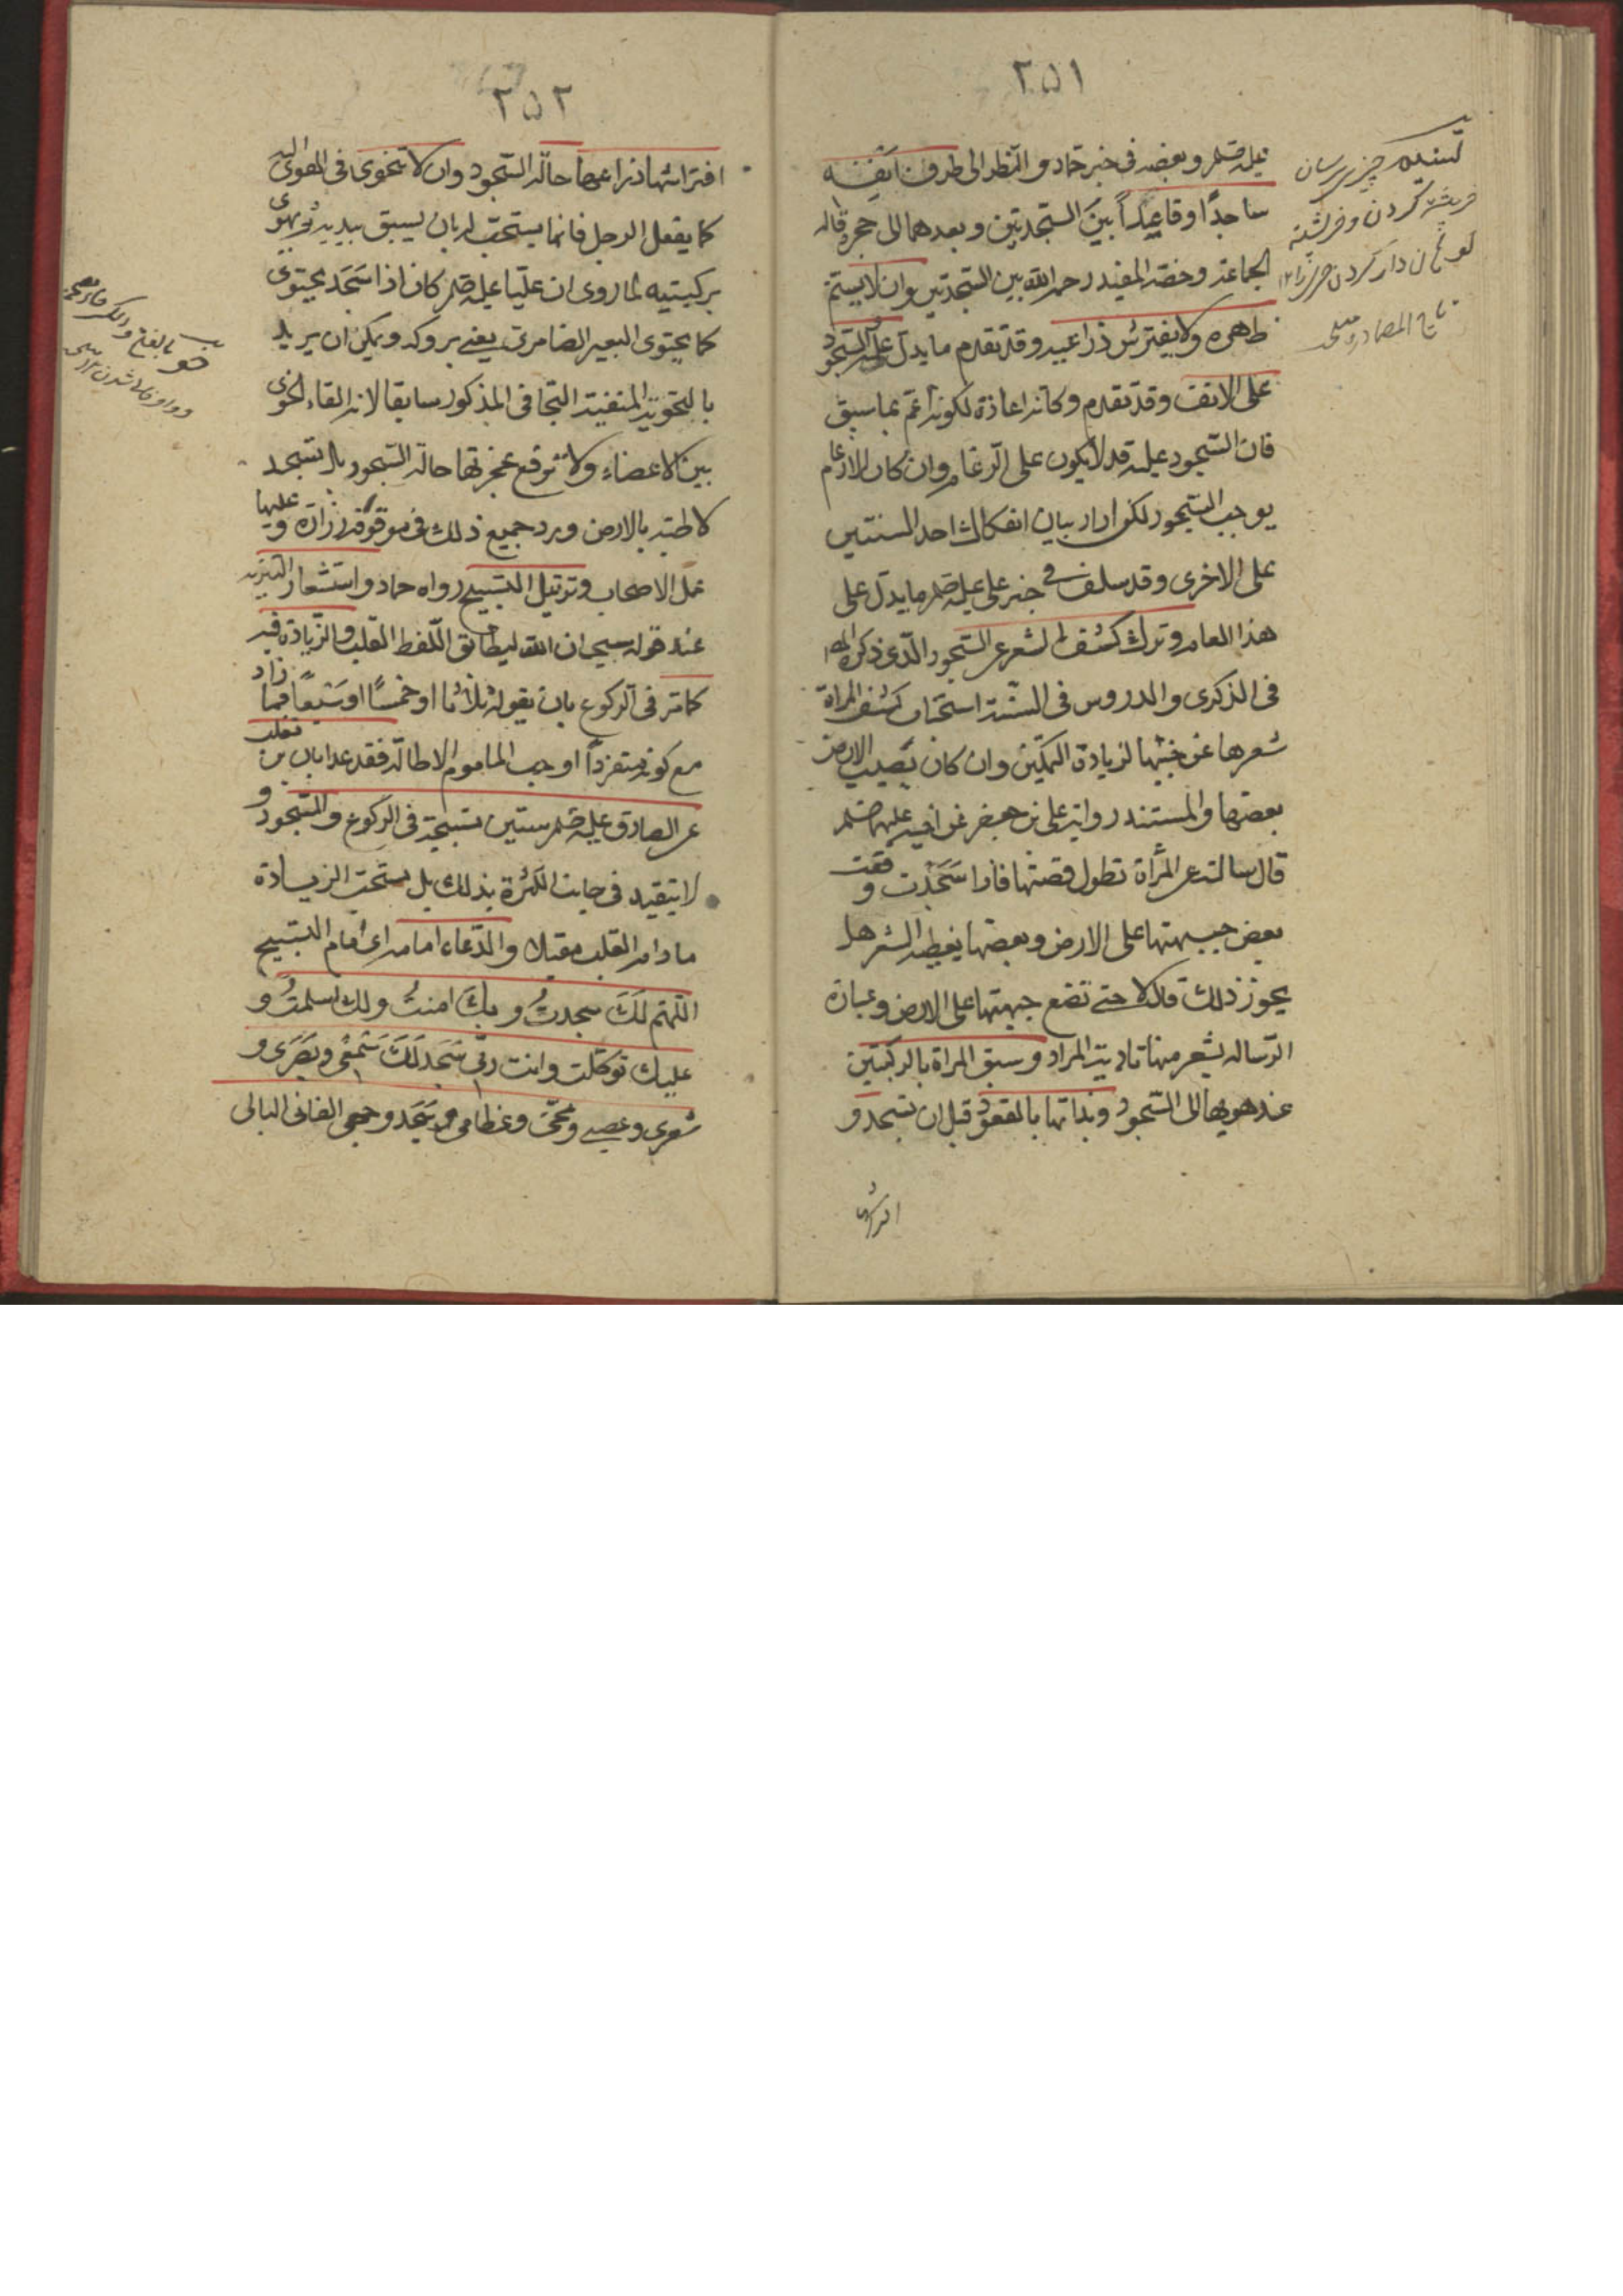 ٢٥١
عليه السلم وبعضه في خبر حماد والنظر الى طرف انفه
ساجدًا وقاعدًا بين السجدتين وبعدهما الى حجره قاله
الجماعة وخصه المفيد رحمه الله بين السجدتين وان لا يستم
ظهره ولا يفترش ذراعيه وقد تقدم ما يدل عليه والسجود
على الانف وقد تقدم وكانه اعاده لكونه اعم بما سبق
فان السجود عليه قد لا يكون على الرغام وان كان الارغام
يوجب السجود لكن اراد بيان انفكاك احد السنتين
على الاخرى وقد سلف في خبر على عليه السلم ما يدل على
هذا العام وترك كشف الشعر عن السجود الذى ذكره المص
فى الذكرى والدروس فى السنة استحباب كشف المراة
شعرها عن جبتها لزيادة التمكين وان كان يصيب الارض
بعضها والمستند رواية على بن جعفر عن اخيه عليهما السلم
قال سالته عن المرأة تطول قصتها فاذا سَجَدت وقعت
بعض جبهتها على الارض وبعضها يغطيه الشعر هل
يجوز ذلك قال لا حتى تضع جبهتها على الارض وعبارة
الرساله يشعر منها تادية المراد وسبق المراة بالركبتين
عند هويها الى السجود وبداتها بالقعود قبل ان تسجد و
افتراش
چيزى رسان
كردن و
دار كردن
تاج المصادر
٢٥٢
افتراشها ذراعيها حالة السجود وان لا تتخوى فى الهوى اليه
كما يفعل الرجل فانما يستحب له بان يسبق بيديه ثم يهوى
بركبتيه لما روى ان عليًا عليه السلم كان اذا سَجَد يتخوى
كما يتخوى البعير الضامر يعنى بروكه ويمكن ان يريد
بالتخوية المنفية التجافى المذكور سابقا لانه القاء الخوى
بين الاعضاء ولا ترفع عجزتها حالة السجود بل تسجد
لاطية بالارض ورد جميع ذلك فى موقوفة زرارة وعليها
عمل الاصحاب وترتيل التسبيح رواه حماد واستشعار التنزيه
عند قوله سبحان الله ليطابق اللفظ القلب والزيادة فيه
كما مر فى الركوع بان يقوله ثلاثًا او خمسًا او سَبعًا فما زاد
مع كونه منفردًا او حب الماموم الاطالة فقد عد ابان بن تغلب
عن الصادق عليه السلم ستين تسبيحة فى الركوع والسجود و
لا يتقيد فى جانب الكثرة بذلك بل يستحب الزيادة
ما دام القلب مقبلا والدعاء امامه اى امام التسبيح
اللهم لَكَ سجدتُ وبكَ امنتُ ولك اسلمتُ و
عليك توكلت وانت ربّى سَجَد لَكَ سَمعى وبَصَرى و
شعرى وعصبى ومخّى وعظامى سَجَد وجهى الفانى البالى
خو بالفتح
شدن